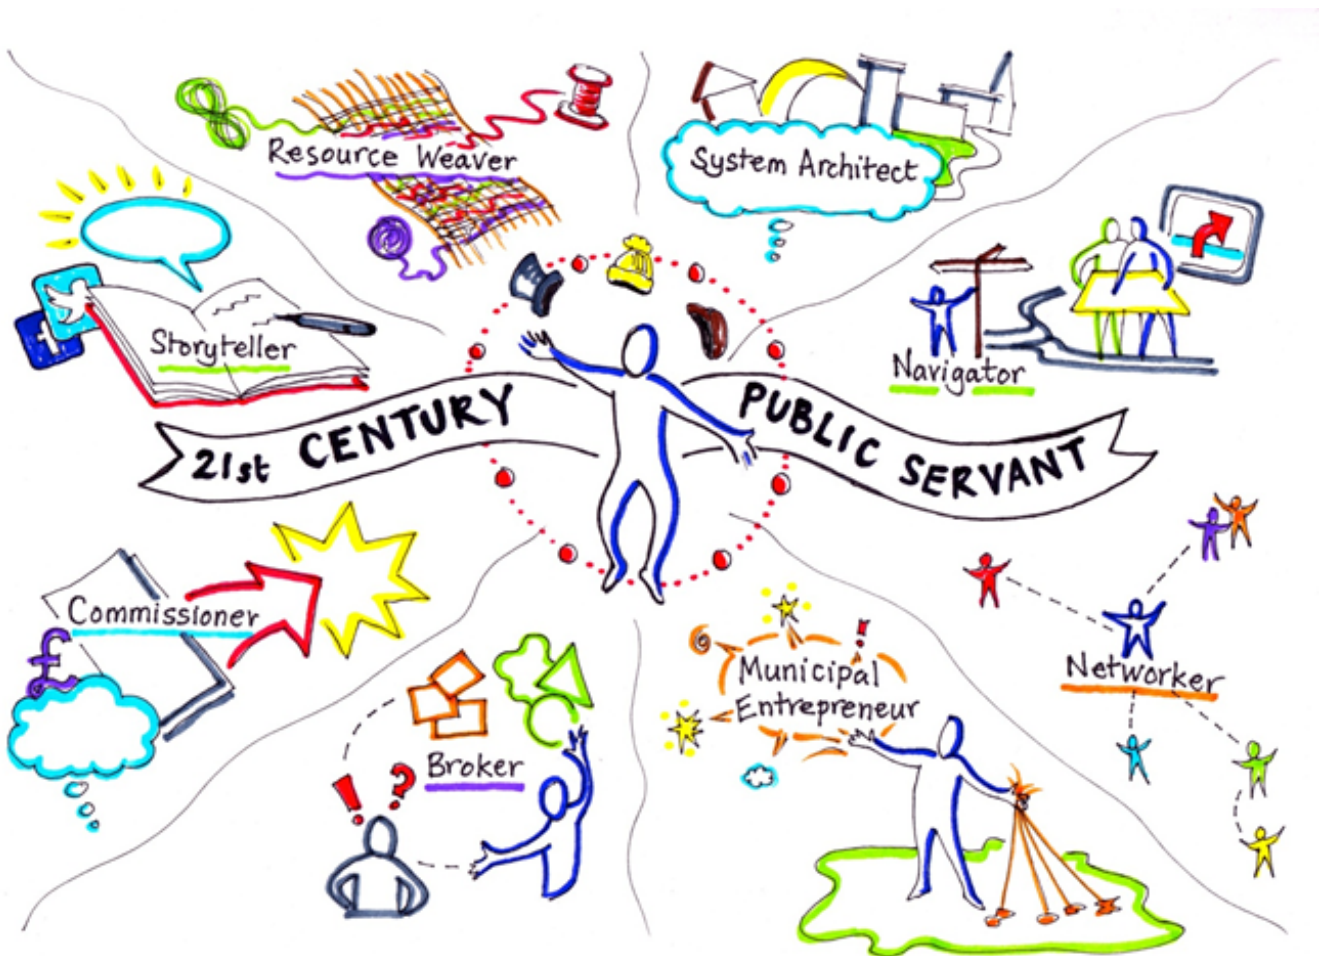 Resource Weaver
System Architect
Storyteller
Navigator
21st CENTURY PUBLIC SERVANT
Commissioner
£
Broker
! ?
Municipal
Entrepreneur
!
Networker